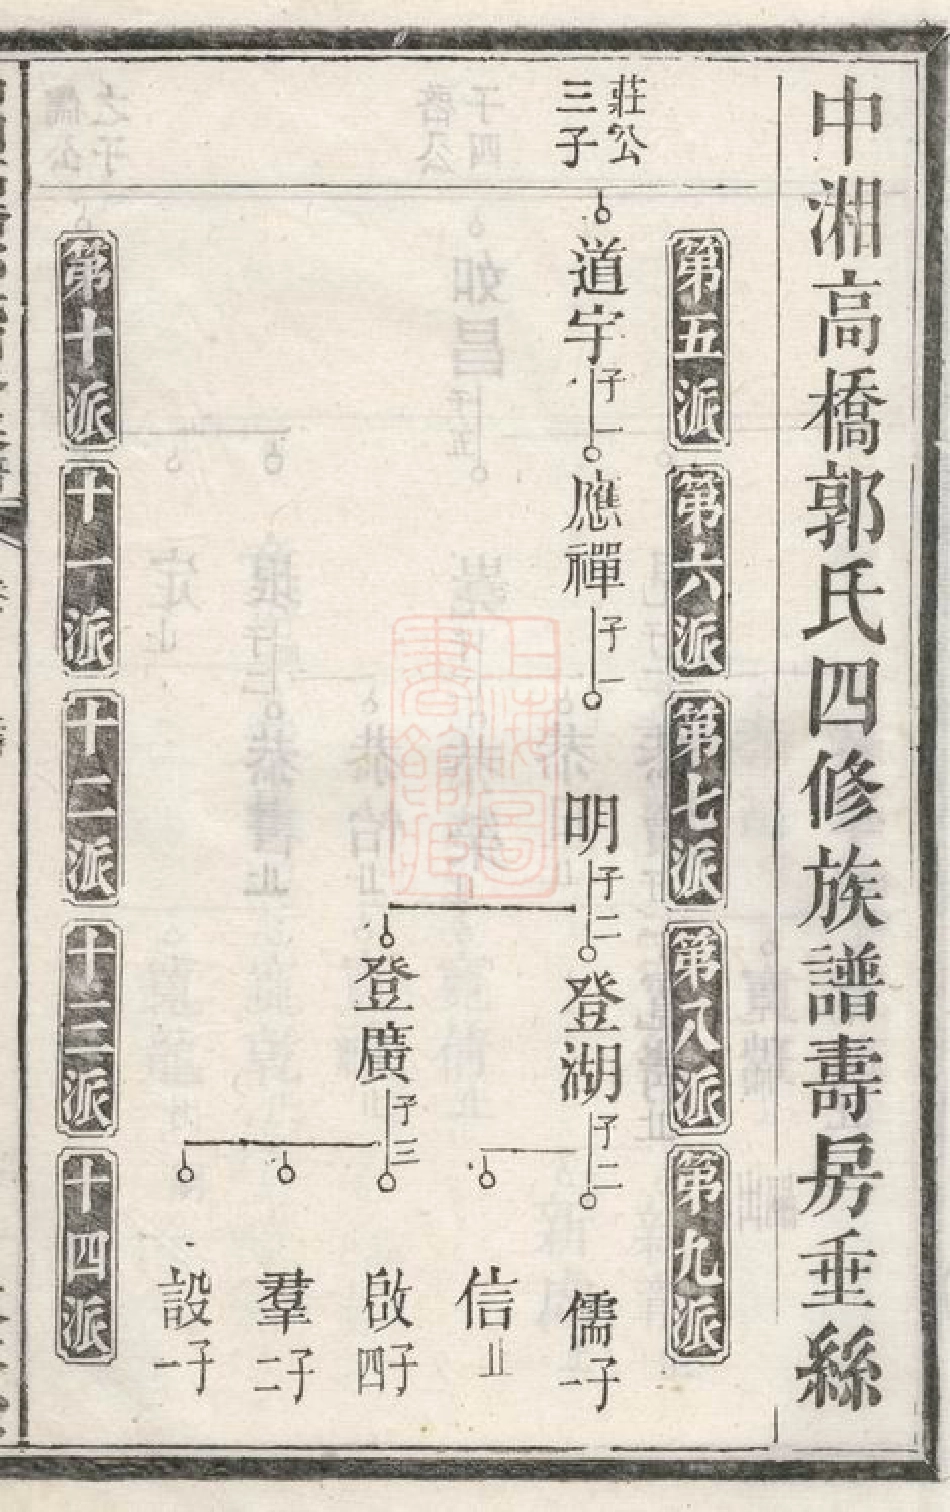 中湘高橋郭氏四修族譜壽房垂絲
第五派
第六派
第七派
第八派
第九派
莊公
三子
道宇
子一
應禪
子一
明
子二
登湖
子二
儒
子一
信
止
登廣
子三
啟
子四
羣
子二
設
子一
第十派
十一派
十二派
十三派
十四派
上海圖書館藏